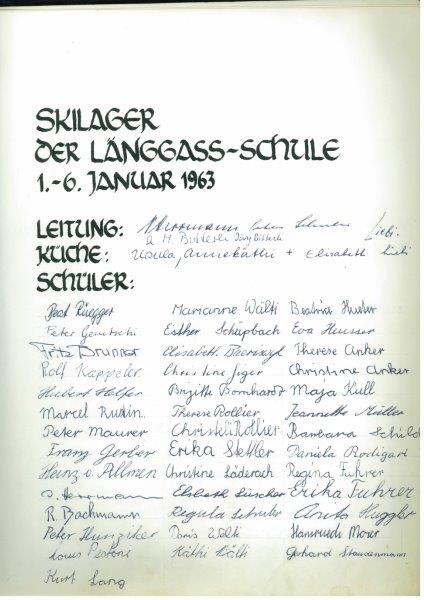 SKILAGER
DER LÄNGGASS-SCHULE
1.-6. JANUAR 1963
LEITUNG:
KÜCHE: Ursula, Annekäthi + Elisabeth
SCHÜLER:
Beat Rüegger Marianne Wälti Beatrix
Peter Esther Schüpbach Eva Heusser
Fritz Brunner Elisabeth Therese Anker
Rolf Kappeler Christine Jiger Christine Anker
Hubert Helfer Brigitte Bernhardt Maja Kull
Marcel Therese Rollier Jeannette Müller
Peter Maurer Christeli Rollier Barbara Schild
Franz Gerber Erika Stettler Daniela Rodigari
Heinz v. Allmen Christine Läderach Regina Fuhrer
Elsbeth Lüscher Erika Fuhrer
R. Bachmann Regula Anita Huggler
Peter Hunziker Doris Wälti Hansruedi Moser
Louis Käthi Wälti Gerhard
Kurt Lang